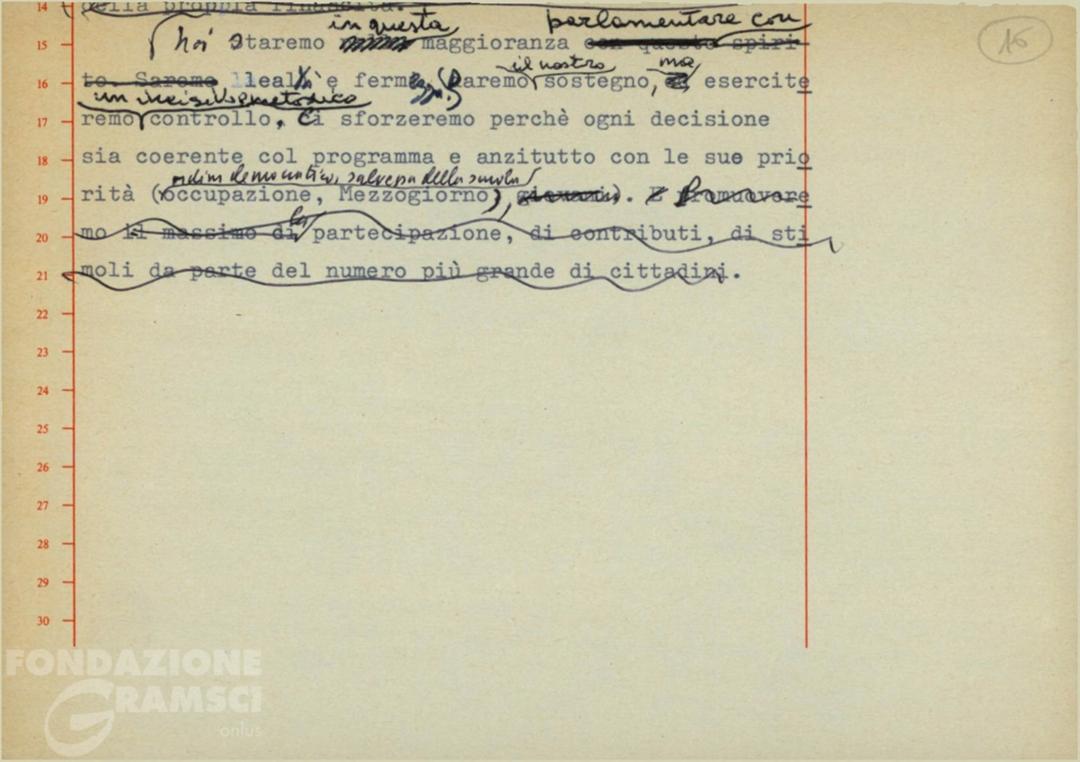 16
14 della propria rinascita.
in questa parlamentare con
15 Noi staremo maggioranza con questo spiri-
il nostro ma
16 to. Saremo leali e fermi. Daremo sostegno, esercite
metodico
17 remo controllo. Ci sforzeremo perchè ogni decisione
18 sia coerente col programma e anzitutto con le sue prio
ordine democratico, salvezza della scuola
19 rità (occupazione, Mezzogiorno), giovani). E Promuovere
la
20 mo il massimo di partecipazione, di contributi, di sti
21 moli da parte del numero più grande di cittadini.
22
23
24
25
26
27
28
29
30
FONDAZIONE
GRAMSCI
onlus